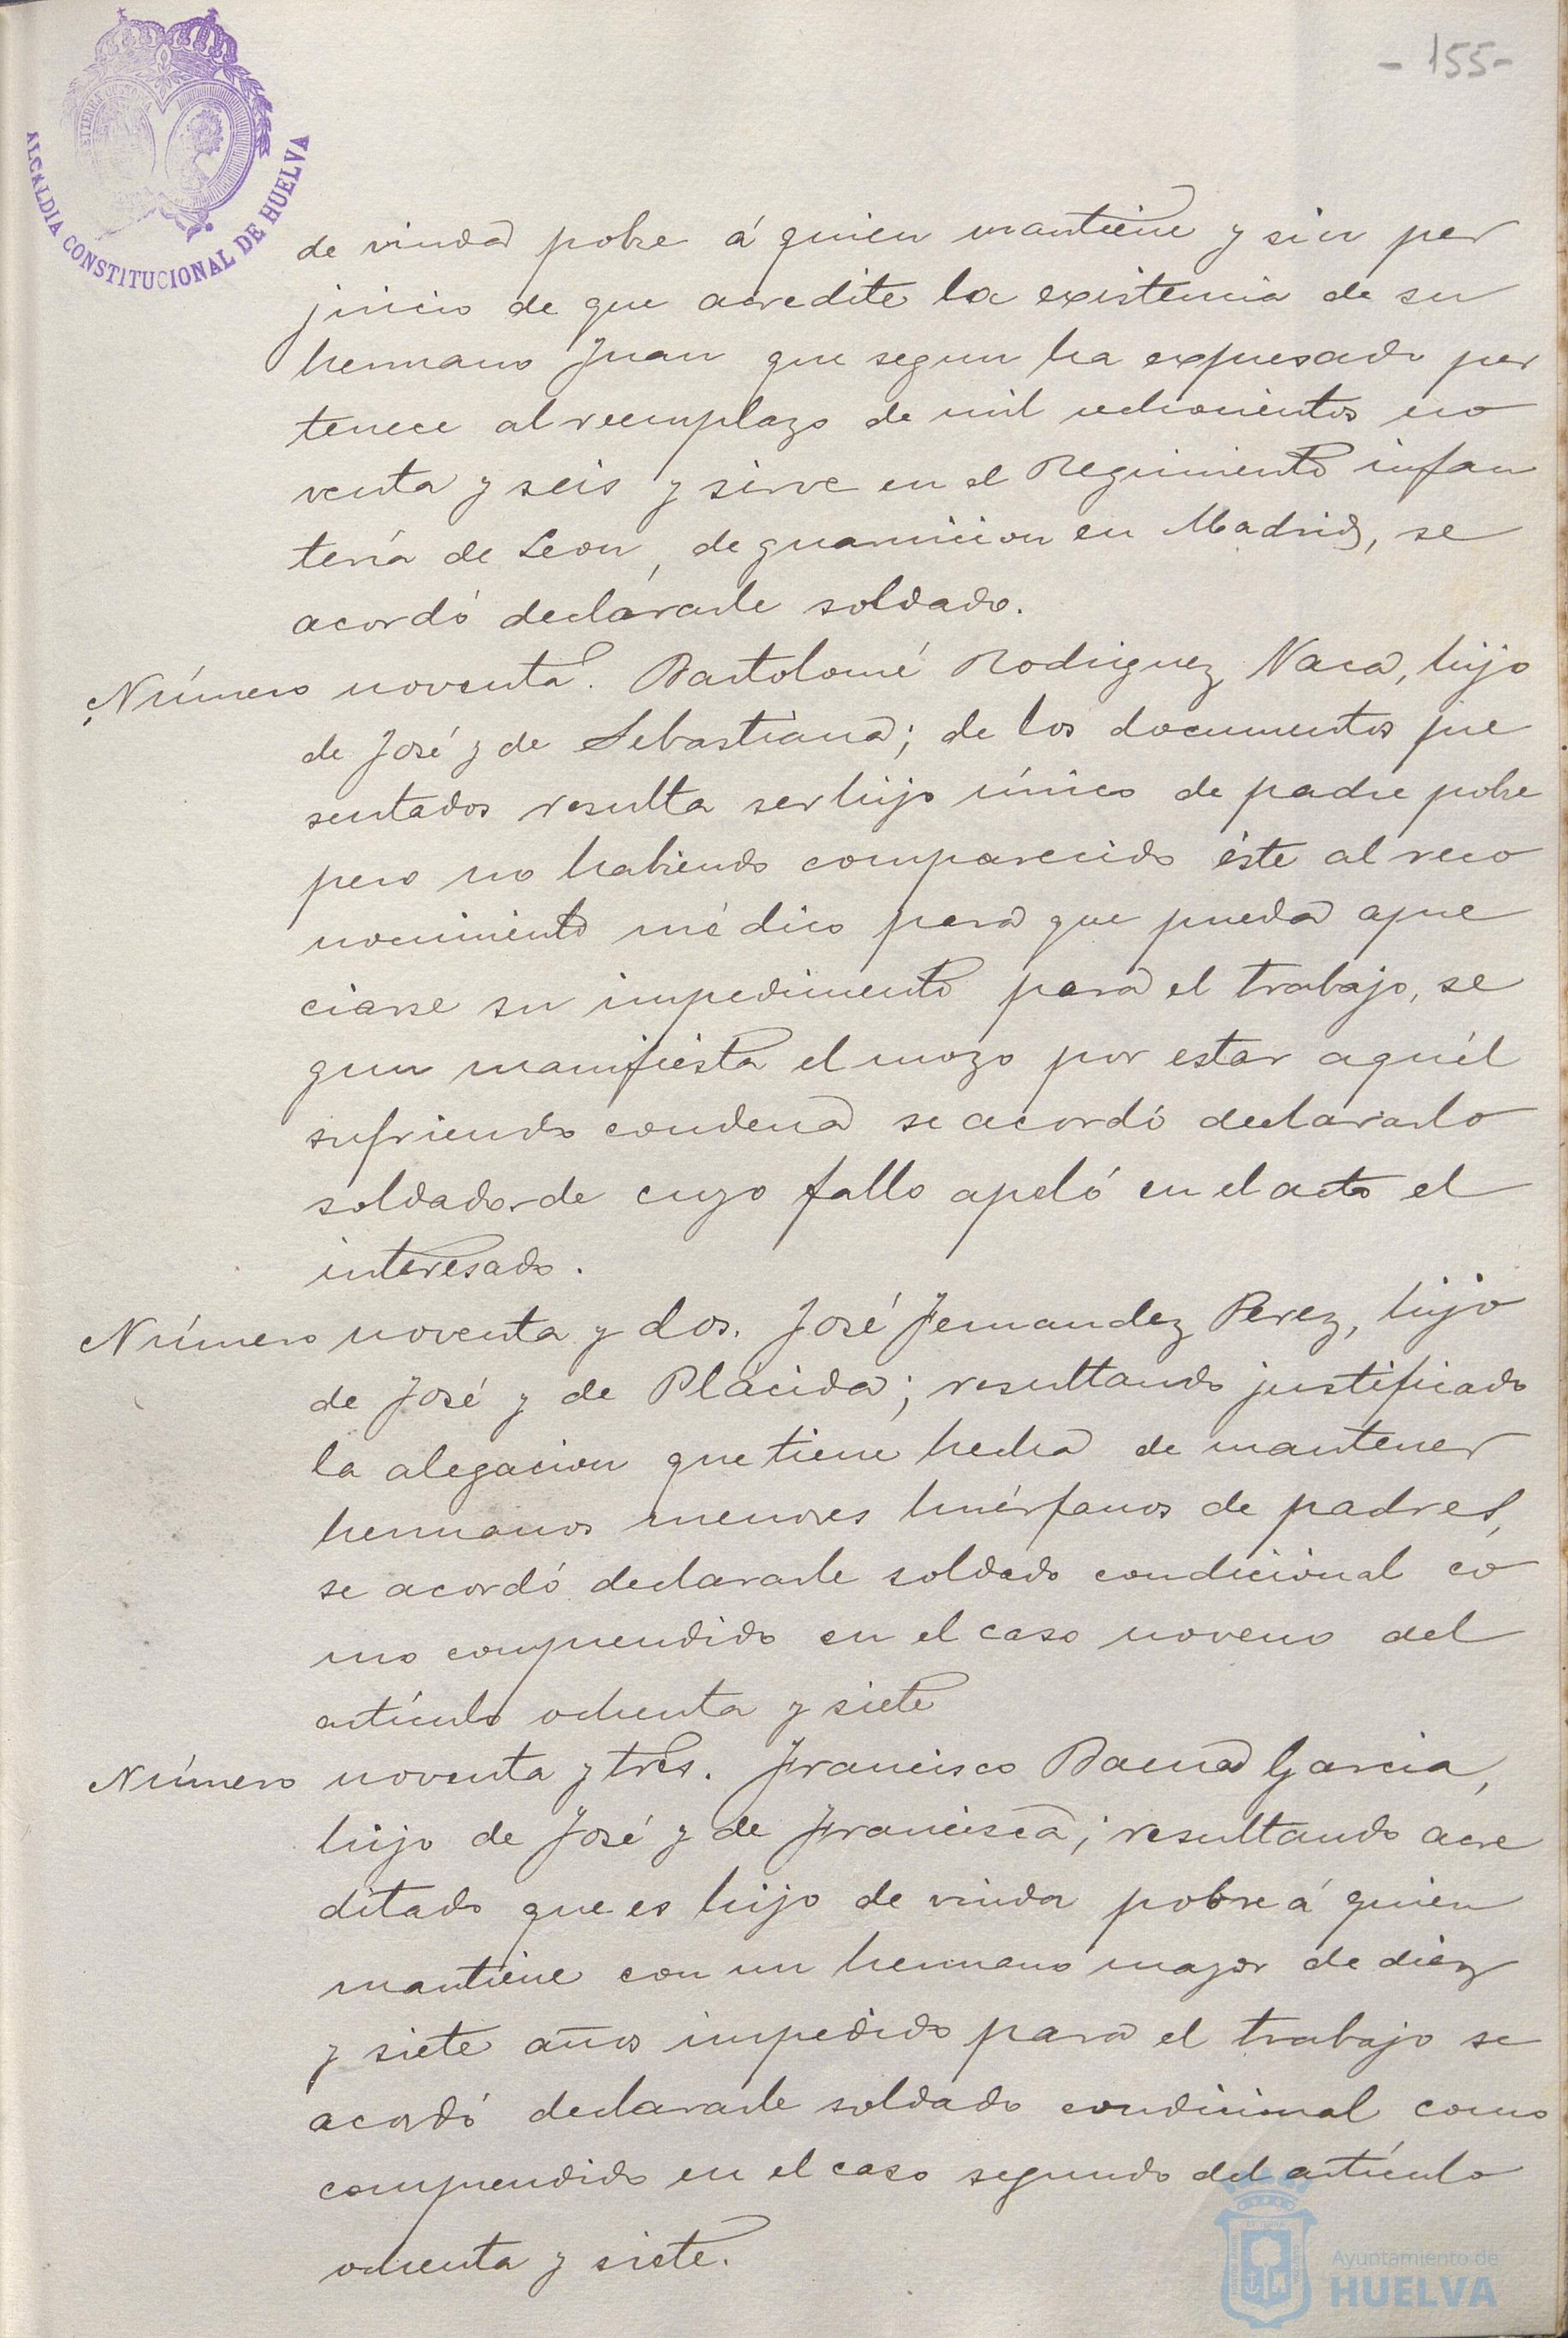 - 155-
ALCALDIA CONSTITUCIONAL DE HUELVA
de viuda pobre á quien mantiene y sin per
juicio de que acredite la existencia de su
hermano Juan que segun ha expresado per
tenece al reemplazo de mil ochocientos no
venta y seis y sirve en el Regimiento infan
tería de Leon, de guarnicion en Madrid, se
acordó declararle soldado.
Número noventa. Bartolomé Rodriguez Vaca, hijo
de José y de Sebastiana; de los documentos pre
sentados resulta ser hijo único de padre pobre
pero no habiendo comparecido éste al reco
nocimiento médico para que pueda apre
ciarse su impedimento para el trabajo, se
gun manifiesta el mozo por estar aquél
sufriendo condena se acordó declararlo
soldado de cuyo fallo apeló en el acto el
interesado.
Número noventa y dos. José Fernandez Perez, hijo
de José y de Plácida; resultando justificado
la alegacion que tiene hecha de mantener
hermanos menores huérfanos de padres,
se acordó declararle soldado condicional co
mo comprendido en el caso noveno del
artículo ochenta y siete
Número noventa y tres. Francisco Baena Garcia,
hijo de José y de Francisca; resultando acre
ditado que es hijo de viuda pobre á quien
mantiene con un hermano mayor de diez
y siete años impedido para el trabajo se
acordó declararle soldado condicional como
comprendido en el caso segundo del artículo
ochenta y siete.
Ayuntamiento de
HUELVA